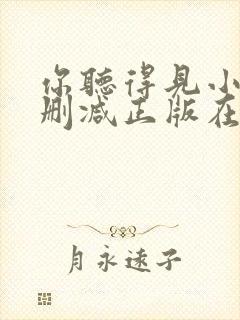 你聽得見小
删减正版在
月永远子